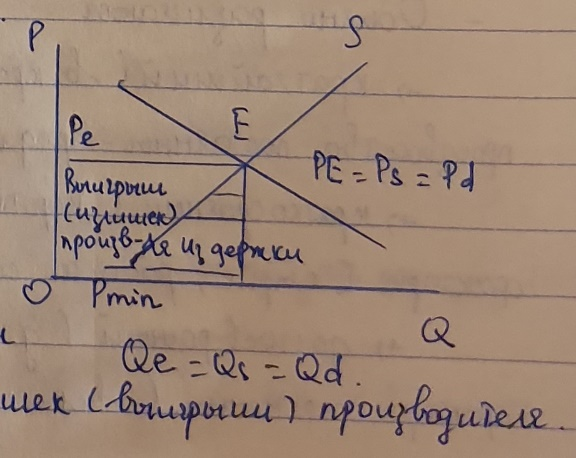 P
S
E
Pe
PE = Ps = Pd
Выигрыш
(излишек)
произв-ля издержки
O
Pmin
Q
Qe = Qs = Qd.
шек (выигрыш) производителя.